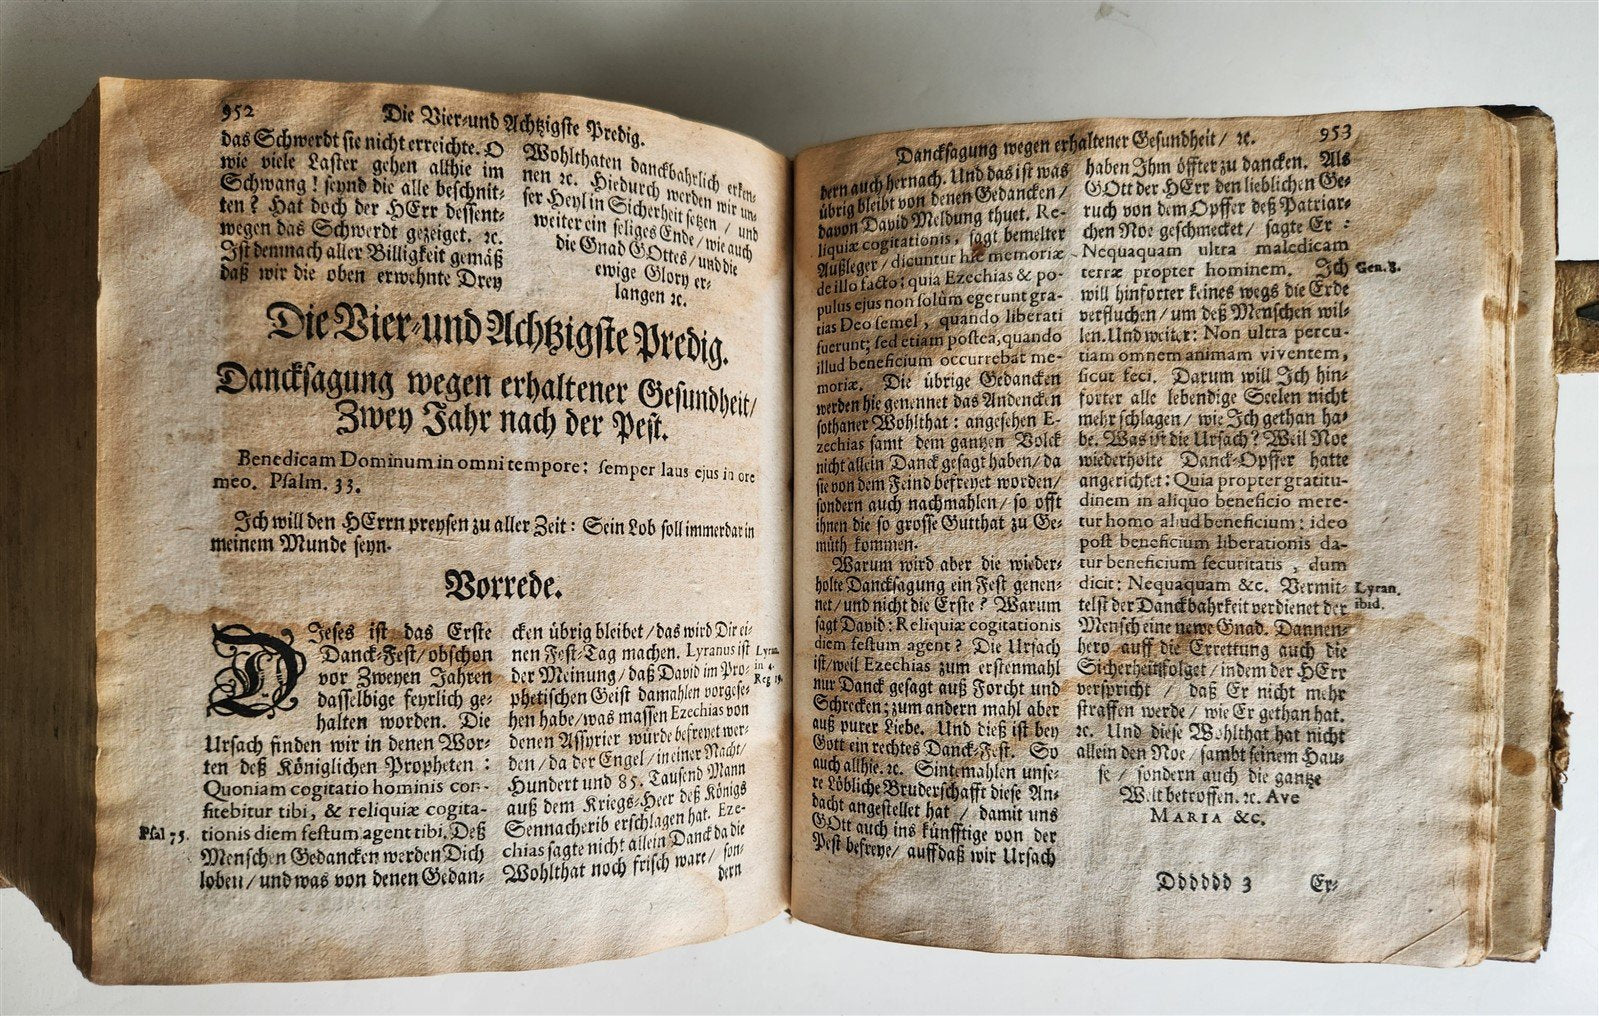 952
Die Vier-und Achtzigste Predig.
das Schwerdt sie nicht erreichte. O
wie viele Laster gehen allhie im
Schwang! seynd die alle beschnit-
ten? Hat doch der HErr dessent-
wegen das Schwerdt gezeiget. ꝛc.
Ist demnach aller Billigkeit gemäß
daß wir die oben erwehnte Drey
Wohlthaten danckbahrlich erken-
nen ꝛc. Hiedurch werden wir un-
ser Heyl in Sicherheit setzen / und
weiter ein seliges Ende / wie auch
die Gnad GOttes / und die
ewige Glory er-
langen ꝛc.
Die Vier-und Achtzigste Predig.
Dancksagung wegen erhaltener Gesundheit /
Zwey Jahr nach der Pest.
Benedicam Dominum in omni tempore: semper laus ejus in ore
meo. Psalm. 33.
Ich will den HErrn preysen zu aller Zeit: Sein Lob soll immerdar in
meinem Munde seyn.
Vorrede.
DIeses ist das Erste
Danck-Fest / obschon
vor Zweyen Jahren
dasselbige feyrlich ge-
halten worden. Die
Ursach finden wir in denen Wor-
ten deß Königlichen Propheten:
Quoniam cogitatio hominis con-
fitebitur tibi, & reliquiæ cogita-
Psal 75. tionis diem festum agent tibi. Deß
Menschen Gedancken werden Dich
loben / und was von denen Gedan-
cken übrig bleibet / das wird Dir ei-
nen Fest-Tag machen. Lyranus ist
der Meinung / daß David im Pro-
phetischen Geist damahlen vorgese-
hen habe / was massen Ezechias von
denen Assyrier würde befreyet wer-
den / da der Engel / in einer Nacht /
Hundert und 85. Tausend Mann
auß dem Kriegs-Heer deß Königs
Sennacherib erschlagen hat. Eze-
chias sagte nicht allein Danck da die
Wohlthat noch frisch ware / son-
dern
Lyra.
in 4.
Reg 19.
Dancksagung wegen erhaltener Gesundheit / ꝛc.
953
dern auch hernach. Und das ist was
übrig bleibt von denen Gedancken /
davon David Meldung thuet. Re-
liquiæ cogitationis, sagt bemelter
Außleger / dicuntur hæ memoriæ
de illo facto: quia Ezechias & po-
pulus ejus non solùm egerunt gra-
tias Deo semel, quando liberati
fuerunt; sed etiam postea, quando
illud beneficium occurrebat me-
moriæ. Die übrige Gedancken
werden hie genennet das Andencken
sothaner Wohlthat: angesehen E-
zechias samt dem gantzen Volck
nicht allein Danck gesagt haben / da
sie von dem Feind befreyet worden /
sondern auch nachmahlen / so offt
ihnen die so grosse Gutthat zu Ge-
müth kommen.
Warum wird aber die wieder-
holte Dancksagung ein Fest genen-
net / und nicht die Erste? Warum
sagt David: Reliquiæ cogitationis
diem festum agent? Die Ursach
ist / weil Ezechias zum erstenmahl
nur Danck gesagt auß Forcht und
Schrecken; zum andern mahl aber
auß purer Liebe. Und dieß ist bey
Gott ein rechtes Danck-Fest. So
auch allhie. ꝛc. Sintemahlen unse-
re Löbliche Bruderschafft diese An-
dacht angestellet hat / damit uns
GOtt auch ins künfftige von der
Pest befreye / auff daß wir Ursach
haben Ihm öffter zu dancken. Als
GOtt der HErr den lieblichen Ge-
ruch von dem Opffer deß Patriar-
chen Noe geschmecket / sagte Er:
Nequaquam ultra maledicam
terræ propter hominem. Ich
will hinforter keines wegs die Erde
verfluchen / um deß Menschen wil-
len. Und weiter: Non ultra percu-
tiam omnem animam viventem,
sicut feci. Darum will Ich hin-
forter alle lebendige Seelen nicht
mehr schlagen / wie Ich gethan ha-
be. Was ist die Ursach? Weil Noe
wiederholte Danck-Opffer hatte
angerichtet: Quia propter gratitu-
dinem in aliquo beneficio mere-
tur homo aliud beneficium: ideo
post beneficium liberationis da-
tur beneficium securitatis, dum
dicit: Nequaquam &c. Vermit-
telst der Danckbahrkeit verdienet der
Mensch eine newe Gnad. Dannen-
hero auff die Errettung auch die
Sicherheit folget / indem der HErr
verspricht / daß Er nicht mehr
straffen werde / wie Er gethan hat.
ꝛc. Und diese Wohlthat hat nicht
allein den Noe / sambt seinem Hau-
se / sondern auch die gantze
Welt betroffen. ꝛc. Ave
MARIA &c.
Gen. 8.
Lyran.
ibid.
Dddddd 3
Er-